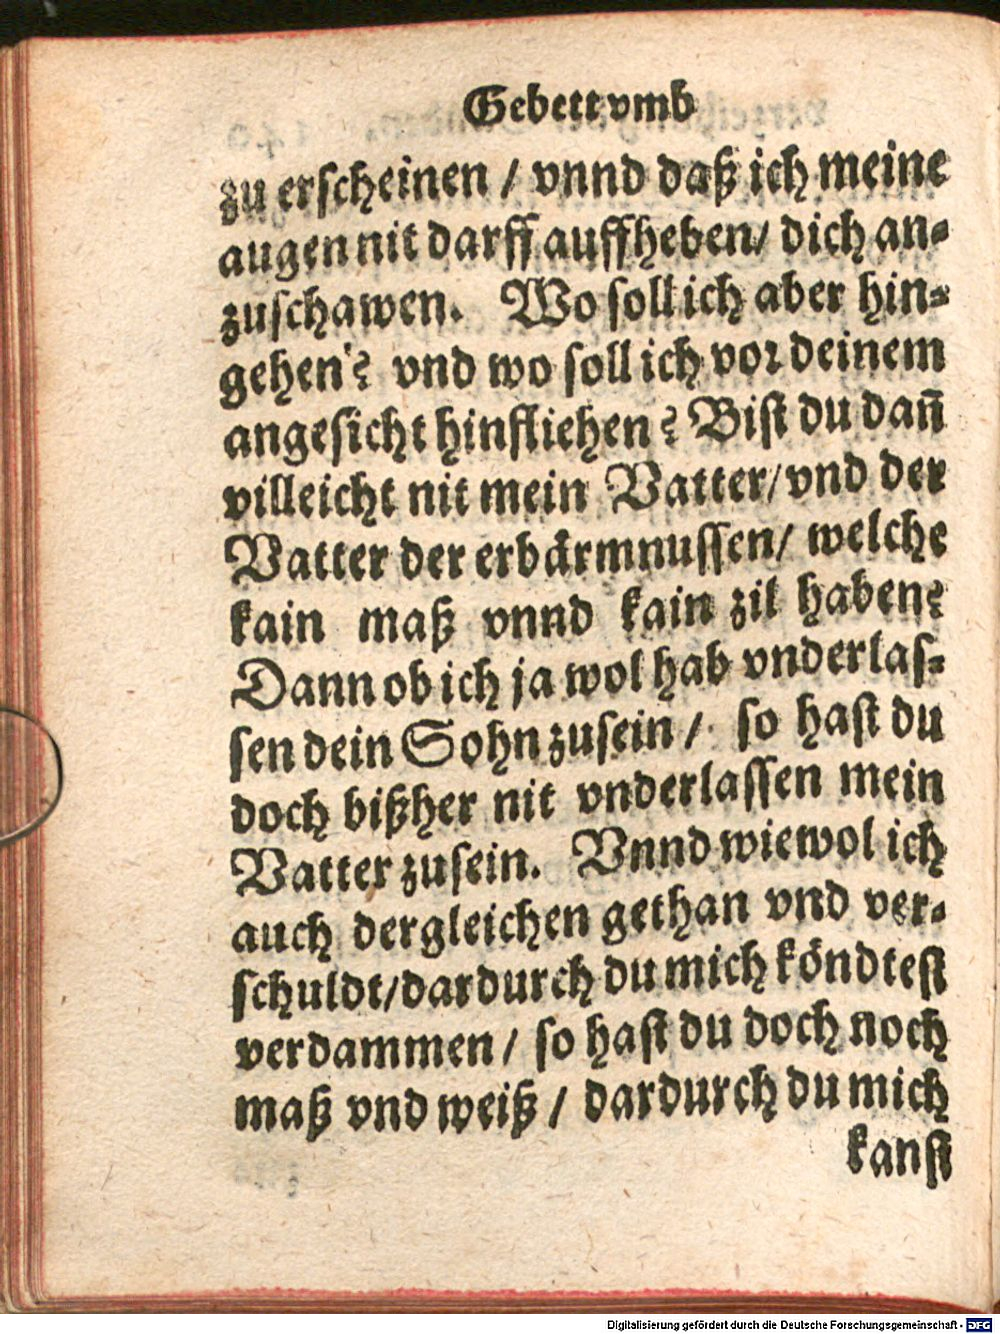 Gebett vmb
zu erscheinen / vnnd daß ich meine
augen nit darff auffheben/ dich an-
zuschawen. Wo soll ich aber hin-
gehen? vnd wo soll ich vor deinem
angesicht hinfliehen? Bist du dañ
villeicht nit mein Vatter/ vnd der
Vatter der erbärmnussen/ welche
kain maß vnnd kain zil haben?
Dann ob ich ja wol hab vnderlas-
sen dein Sohn zusein / so hast du
doch bißher nit vnderlassen mein
Vatter zusein. Vnnd wiewol ich
auch dergleichen gethan vnd ver-
schuldt/dardurch du mich köndtest
verdammen / so hast du doch noch
maß vnd weiß / dardurch du mich
kanst
Digitalisierung gefördert durch die Deutsche Forschungsgemeinschaft - DFG